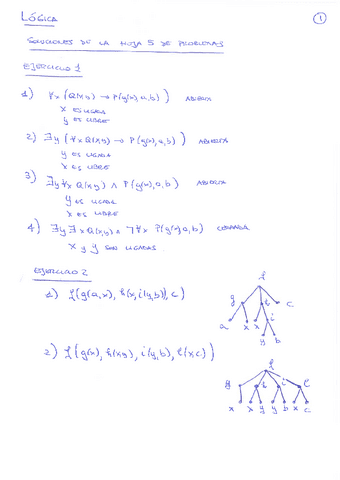 LÓGICA
1
SOLUCIONES DE LA HOJA 5 DE PROBLEMAS
EJERCICIO 1
1) ∀x (Q(x,y) → P(g(x),a,b)) ABIERTA
x ES LIGADA
y ES LIBRE
2) ∃y (∀x Q(x,y) → P(g(x),a,b)) ABIERTA
y ES LIGADA
x ES LIBRE
3) ∃y ∀x Q(x,y) ∧ P(g(x),a,b) ABIERTA
y ES LIGADA
x ES LIBRE
4) ∃y ∃x Q(x,y) ∧ ¬∀x P(g(x),a,b) CERRADA
x y y SON LIGADAS.
EJERCICIO 2
1) f(g(a,x), h(x,i(y,b)), c)
f
g h c
a x x i
y b
2) f(g(x), h(x,y), i(y,b), l(x,c))
f
g h i l
x x y y b x c